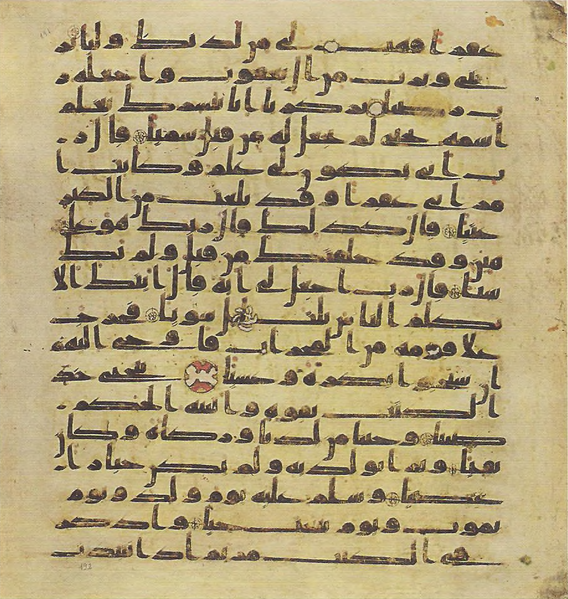 عقرا فهب لى من لدنك وليا ير
ثنى ويرث من ال يعقوب واجعله ر
ب رضيا يزكريا انا نبشرك بغلم
اسمه يحيى لم نجعل له من قبل سميا قال ر
ب انى يكون لى غلم وكانت ا
مراتى عقرا وقد بلغت من الكبر
عتيا قال كذلك قال ربك هو على
هين وقد خلقتك من قبل ولم تك
شيا قال رب اجعل لى اية قال ايتك الا
تكلم الناس ثلث ليل سويا فخرج
على قومه من المحراب فاوحى اليهم
ان سبحوا بكرة وعشيا ييحيى خذ
الكتب بقوة واتينه الحكم
صبيا وحنانا من لدنا وزكوة وكان
تقيا وبرا بولديه ولم يكن جبارا
عصيا وسلم عليه يوم ولد ويوم
يموت ويوم يبعث حيا واذكر
فى الكتب مريم اذ انتبذت